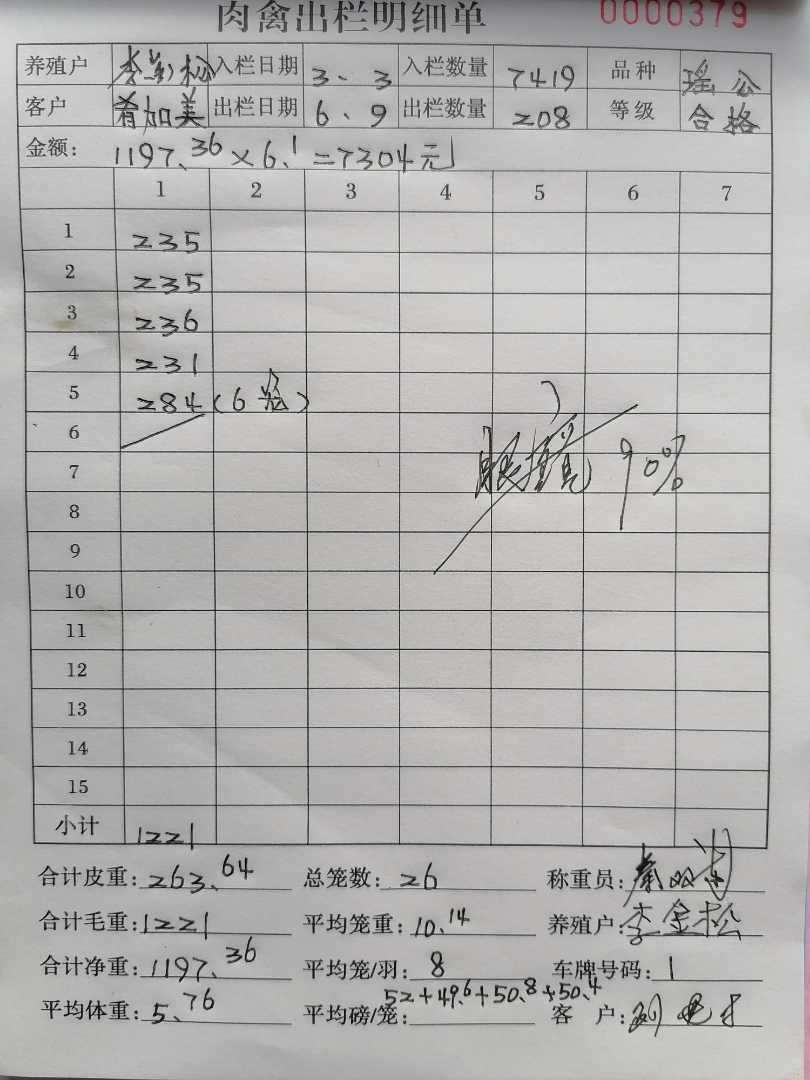 肉禽出栏明细单 0000379
养殖户 李金松 入栏日期 3、3 入栏数量 7419 品种 瑶公
客户 肴加美 出栏日期 6、9 出栏数量 208 等级 合格
金额: 1197.36×6.1=7304元
1 2 3 4 5 6 7
1 235
2 235
3 236
4 231
5 284(6笼)
6
7 90%
8
9
10
11
12
13
14
15
小计 1221
合计皮重: 263.64 总笼数: 26 称重员:
合计毛重: 1221 平均笼重: 10.14 养殖户: 李金松
合计净重: 1197.36 平均笼/羽: 8 车牌号码: 1
平均体重: 5.76 平均磅/笼: 52+49.6+50.8+50.4 客 户: